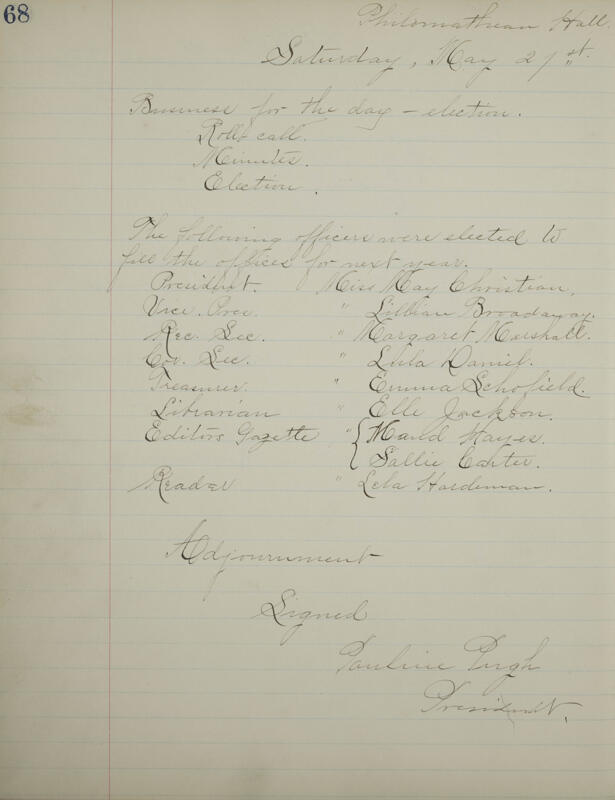 68
Philomathean Hall.
Saturday, May 21st.
Business for the day – election.
Roll call.
Minutes.
Election.
The following officers were elected to
fill the offices for next year.
President. Miss May Christian.
Vice Pres. " Lillian Broadaway.
Rec. Sec. " Margaret Marshall.
Cor. Sec. " Lula Daniel.
Treasurer " Emma Schofield.
Librarian " Elle Jackson.
Editors Gazette " { Maud Hayes.
Sallie Carter.
Reader " Lela Hardeman.
Adjournment
Signed
Pauline Pugh
President.